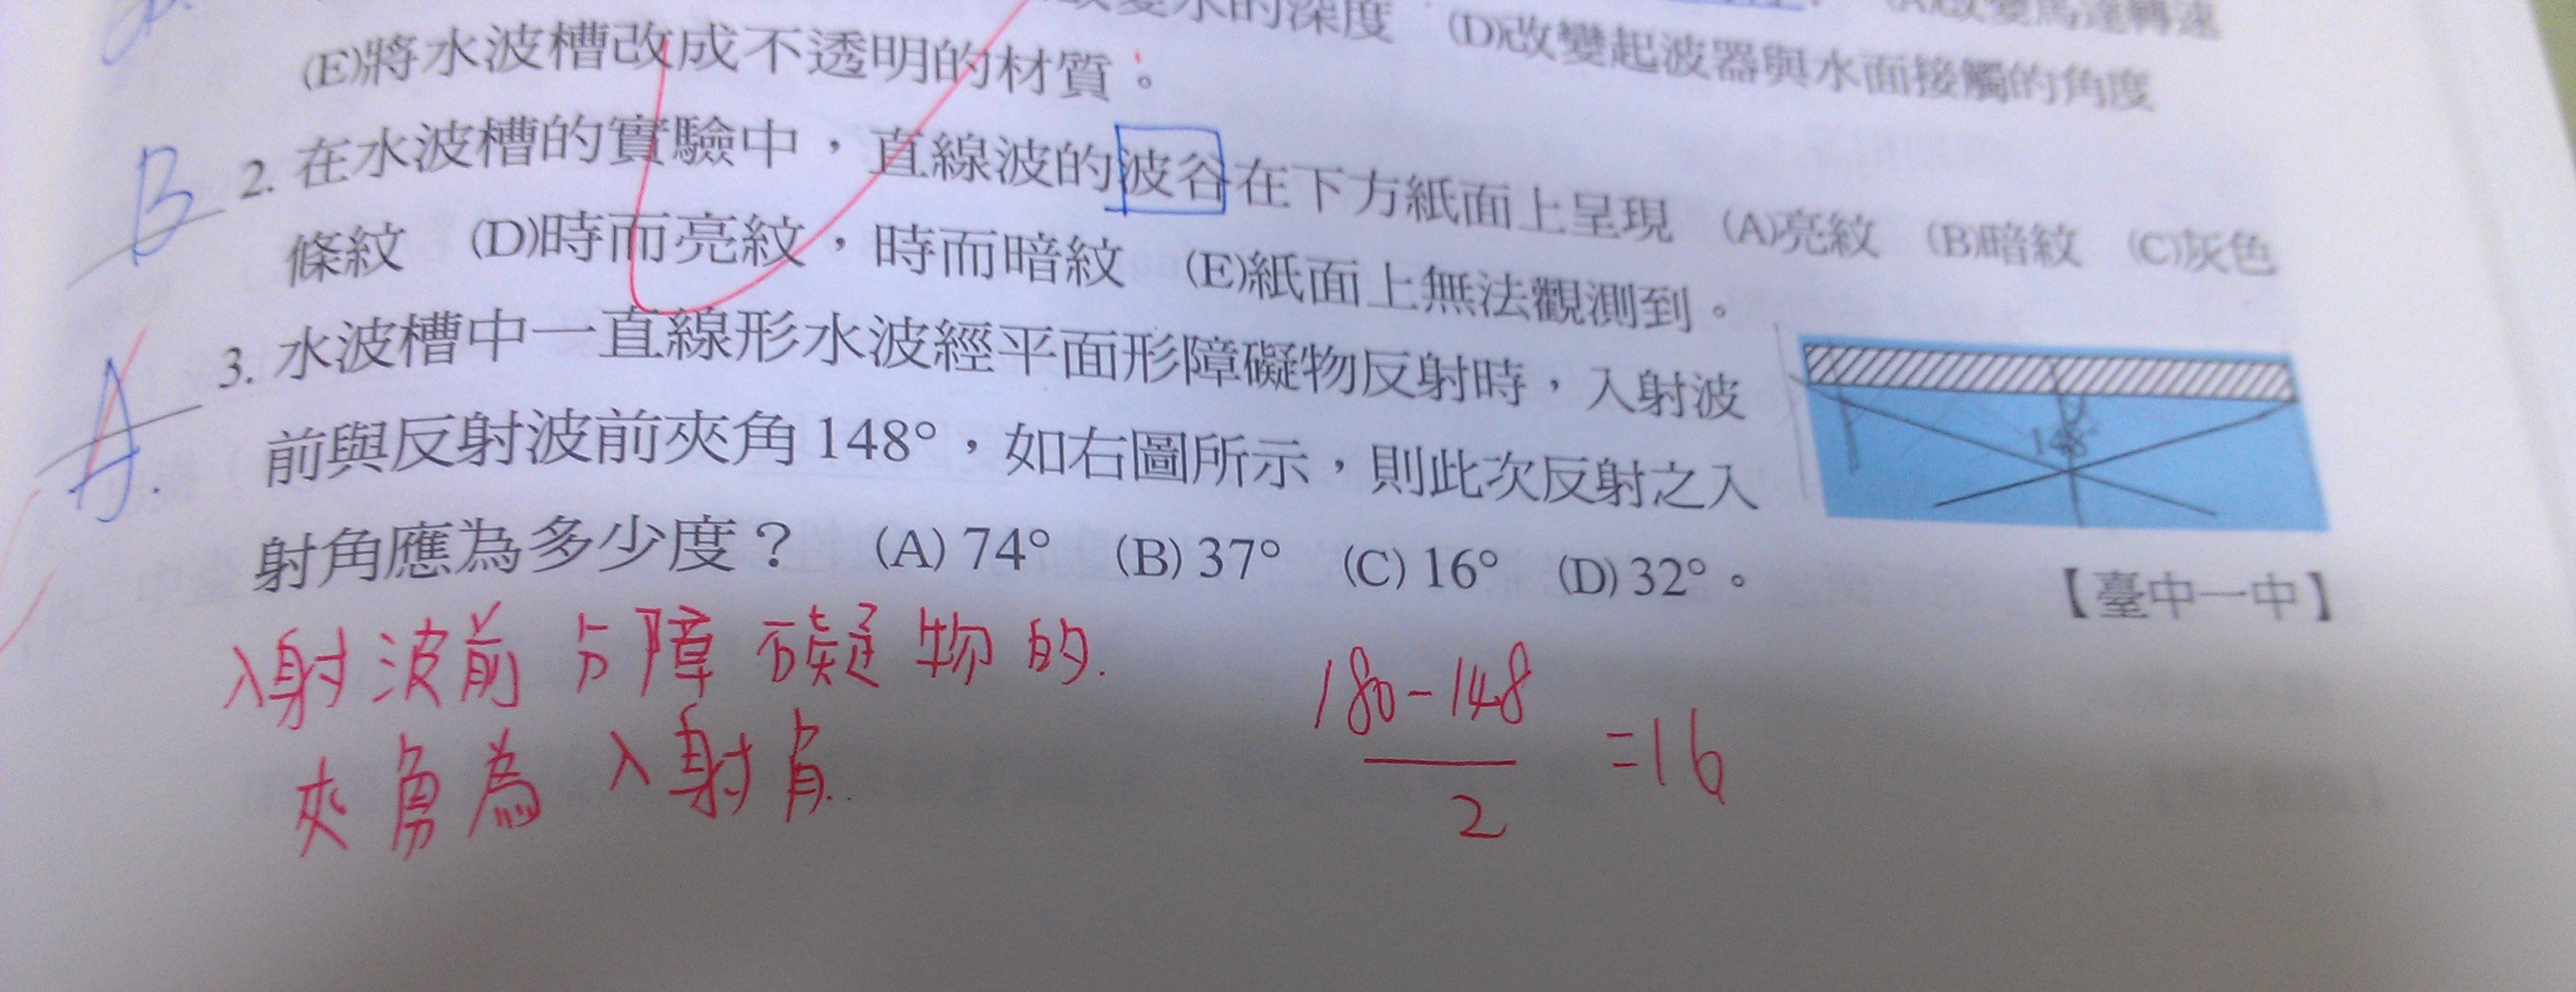 改變水的深度 (D)改變起波器與水面接觸的角度
(E)將水波槽改成不透明的材質。
B 2. 在水波槽的實驗中，直線波的波谷在下方紙面上呈現 (A)亮紋 (B)暗紋 (C)灰色
條紋 (D)時而亮紋，時而暗紋 (E)紙面上無法觀測到。
A. 3. 水波槽中一直線形水波經平面形障礙物反射時，入射波
前與反射波前夾角148°，如右圖所示，則此次反射之入
射角應為多少度？ (A) 74° (B) 37° (C) 16° (D) 32°。
148°
【臺中一中】
入射波前与障礙物的.
夾角為入射角.
180-148
2
=16